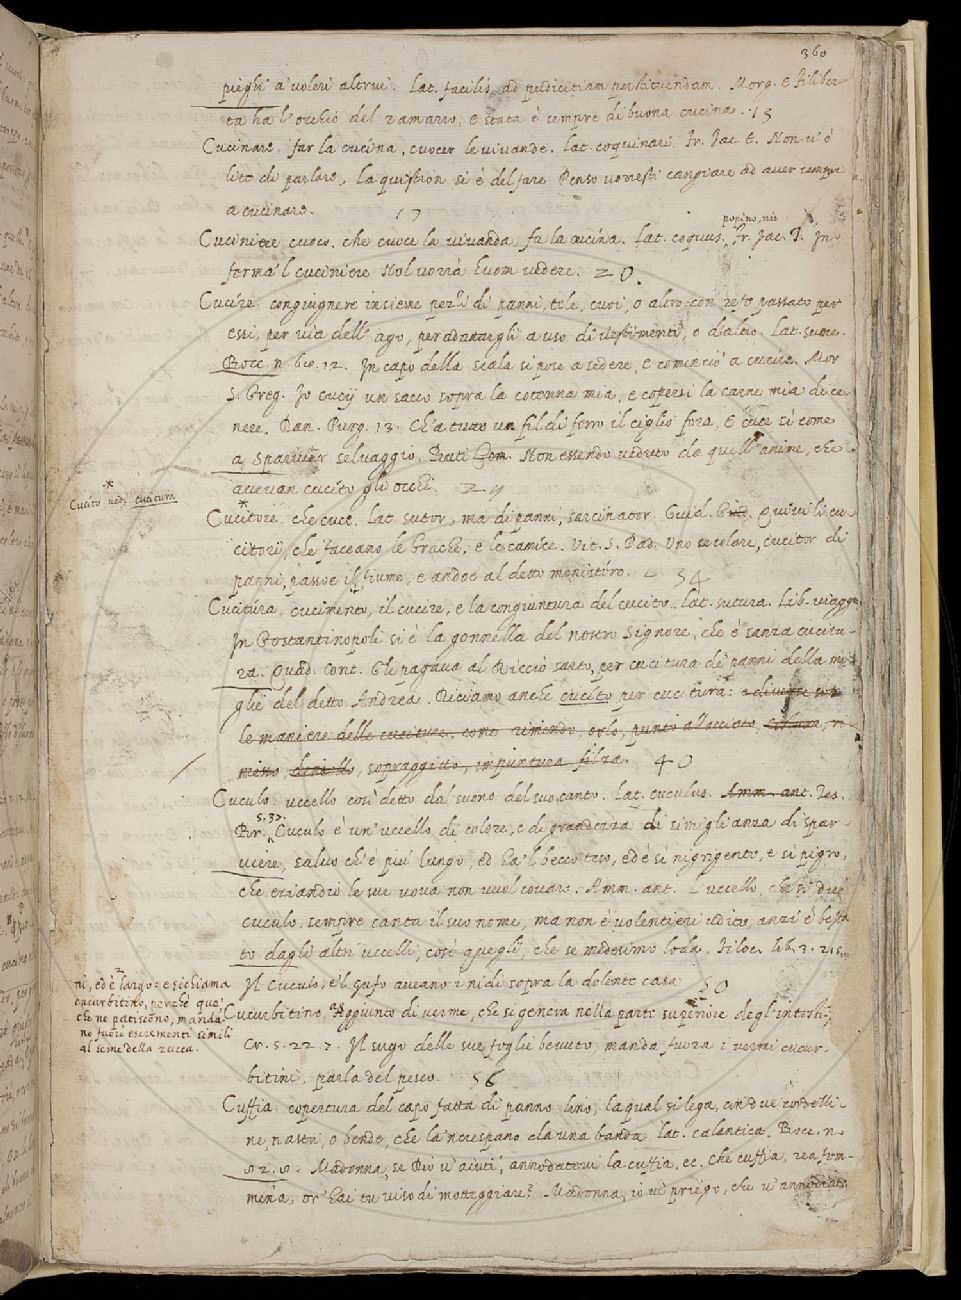 360
pieghi a' voleri altrui. Lat. facilis ad pudicitiam Morg. E Filiber-
ta ha l'occhio del ramarro, e stata è sempre di buona cucina. 15
Cucinare. far la cucina, cuocer le vivande. Lat. coquinari. Fr. Iac. t. Non v'è
lite di parlare, La quistion si è del fare Penso vorresti cangiare ad aver sempre
a cucinare. 17
popino, nis
Cuciniere cuoco. che cuoce la vivanda, fa la cucina. Lat. coquus. Fr. Iac. T. In
forma'l cuciniere Nol vorrà huom vedere. 20
Cucire congiugnere insieme pezzi di panni, tele, cuoi, o altro con refe passato per
essi, per via dell'ago, per adattargli a uso di vestimenti, o d'altro. Lat. suere.
Bocc. n. 60. 12. In capo della scala si pose a sedere, e cominciò a cucire. Mor
S. Greg. Io cucij un sacco sopra la cotenna mia, e copersi la carne mia di ce-
nere. Dan. Purg. 13. Ch'a tutti un fil di ferro il ciglio fora, E cuce sì come
a sparvier selvaggio. Buti Com. Non essendo veduto da quell'anime, che
avevan cucito gli occhi. 29
* Cucito vedi cucitura
Cucitore. che cuce. Lat. sutor, ma di panni, sarcinator. Guid. Giud. Quivi li cu-
citori che faceano le brache, e le camice. Vit. S. Pad. Uno secolare, cucitor di
panni, passoe il fiume, e andoe al detto monistéro. 34
Cucitúra. cucimento, il cucire, e la congiuntura del cucito. Lat. sutura. Lib. viagg.
In Gostantinopoli si è la gonnella del nostro Signore, che è sanza cucitu-
ra. Quad. Cont. Gli pagava al Riccio sarto, per cucitura de' panni della mo
glie del detto Andrea. Diciamo anche cucito per cucitura: e diverse son
le maniere delle cuciture, come rimendo, orlo, punto allacciato, ri-
messo, sopraggitto, impuntura filza. 40
Cuculo. uccello così detto dal suono del suo canto. Lat. cuculus. Amm. ant. Tes.
Br. 5. 32. Cuculo è un'uccello, di colore, e di grandezza di simiglianza di spar-
viere, salvo ch'è più lungo, ed ha'l becco torto, ed è sì nigrigente, e sì pigro,
che eziandio le sue uova non vuol covare. Amm. ant. L'uccello, che si dice
cuculo, sempre canta il suo nome, ma non è volentieri udito, anzi è beffa
to dagli altri uccelli, così quegli, che se medesimo loda. Filoc. lib. 3. 215
Il Cuculo, e'l gufo aveano i nidi sopra la dolente casa 50
ni, ed è largo: e si chiama
cucurbitino, perchè que',
che ne patiscono, manda
no fuori escrementi simili
al seme della zucca.
Cucurbitino. Aggiunto di verme, che si genera nella parte superiore degl'intesti-
Cr. 5. 22. 7. Il sugo delle sue foglie bevuto, manda fuora i vermi cucur-
bitini. parla del pesco. 56
Cuffia copertura del capo fatta di panno lino, la qual si lega, con due cordelli-
ne, nastri, o bende, che la 'ncrespano da una banda. Lat. calantica. Bocc. n.
82. 8. Madonna, se Dio v'aiuti, annodatevi la cuffia, ec. Che cuffia, rea fem-
mina, or hai tu viso di motteggiare? Madonna, io vi priego, che v'annodiate